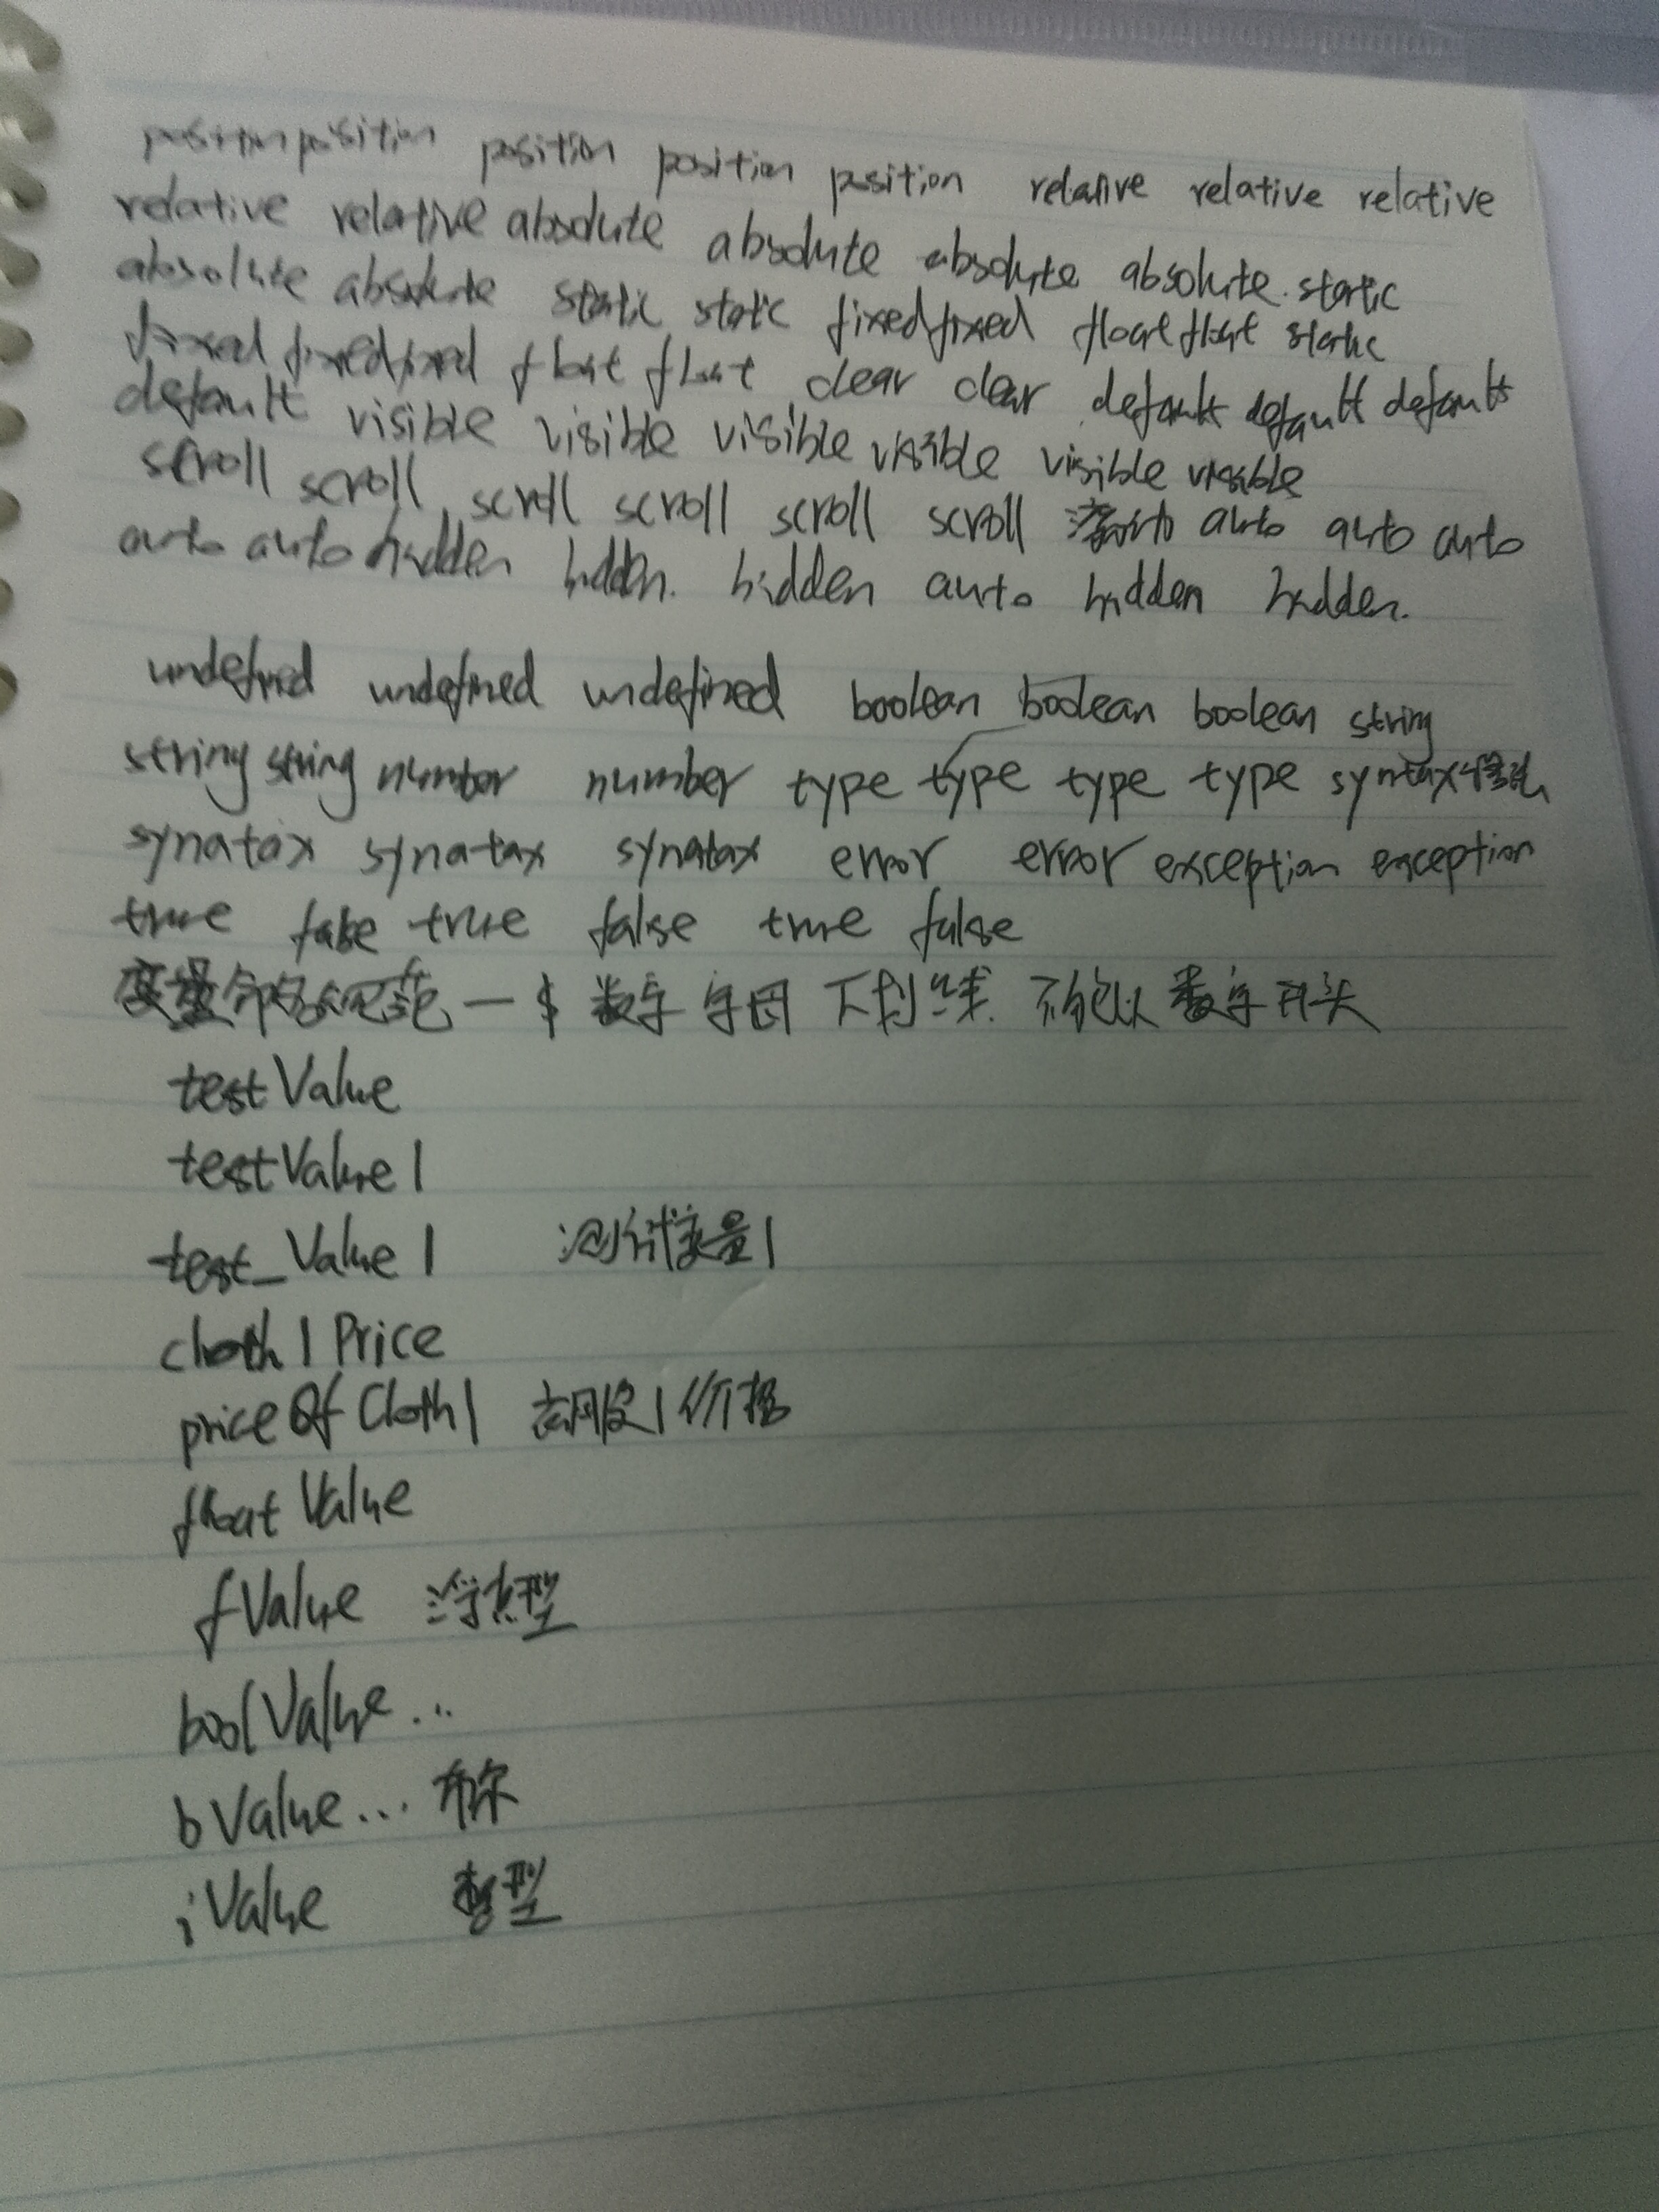 position position position position position relative relative relative
relative relative absolute absolute absolute absolute static
absolute absolute static static fixed fixed float float static
fixed fixed fixed float float clear clear default default default
default visible visible visible visible visible visible
scroll scroll scroll scroll scroll scroll auto auto auto
auto auto hidden hidden. hidden auto hidden hidden.
undefined undefined undefined boolean boolean boolean string
string string number number type type type type syntax
synatax synatax synatax error error exception exception
true false true false true false
变量命名规范 — $ 数字 字母 下划线. 不能以数字开头
testValue
testValue1
test_Value1 测试变量1
cloth1Price
priceOfCloth1 衣服1价格
floatValue
fValue 浮点型
boolValue...
bValue... 布尔
iValue 整型